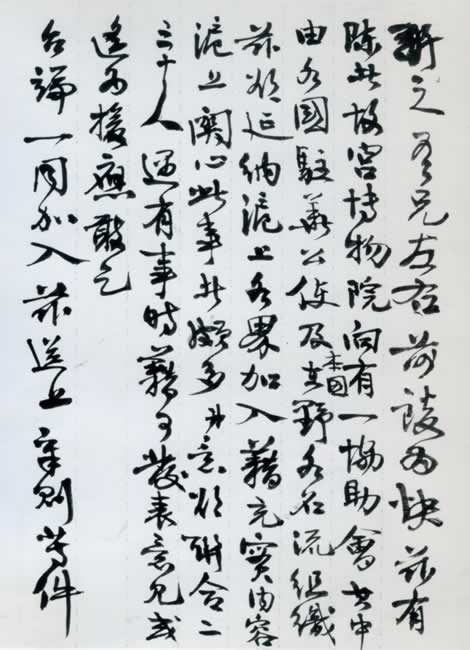 之吾兄左右談為快茲有
陳者故宮博物院向有一協助會其中
由各國駐華公使及本國在野各名流組織
茲欲延納滬上各界加入藉充實內容
滬上關心此事者頗多弟意欲聯合二
三十人遇有事時藉可發表意見或
遙為援應敢乞
台端一同加入茲送上章則等件